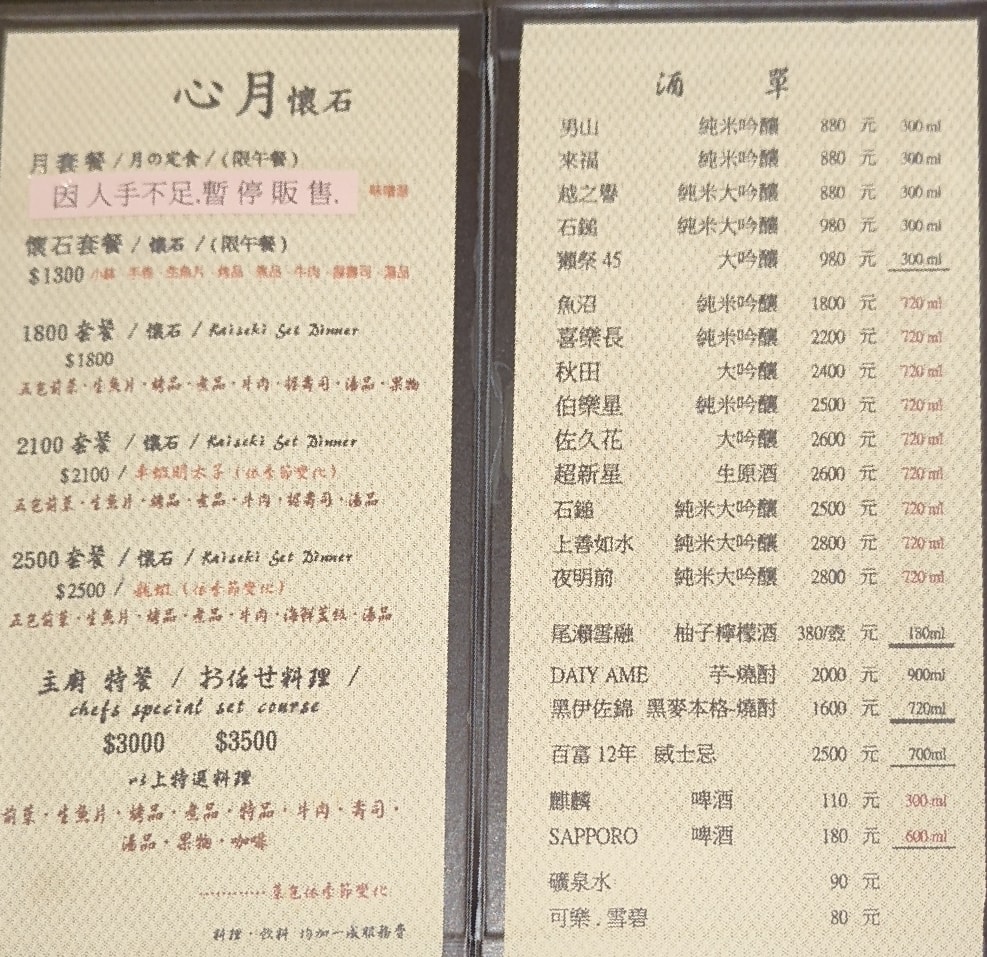 心月懷石
月套餐 / 月の定食 / (限午餐)
因人手不足.暫停販售.
味噌湯
懷石套餐 / 懷石 / (限午餐)
$1300 小缽 手卷 生魚片 烤品 煮品 牛肉 握壽司 湯品
1800 套餐 / 懷石 / Kaiseki Set Dinner
$1800
五色前菜・生魚片・烤品・煮品・牛肉・握壽司・湯品・果物
2100 套餐 / 懷石 / Kaiseki Set Dinner
$2100 / 車蝦明太子 (依季節變化)
五色前菜・生魚片・烤品・煮品・牛肉・握壽司・湯品
2500 套餐 / 懷石 / Kaiseki Set Dinner
$2500 / 龍蝦 (依季節變化)
五色前菜・生魚片・烤品・煮品・牛肉・海鮮蓋飯・湯品
主廚 特餐 / お任せ料理 /
chefs special set course
$3000 $3500
以上特選料理
前菜・生魚片・烤品・煮品・特品・牛肉・壽司・
湯品・果物・咖啡
............菜色依季節變化
料理・飲料 均加一成服務費
酒 單
男山 純米吟釀 880 元 300 ml
來福 純米吟釀 880 元 300 ml
越之譽 純米大吟釀 880 元 300 ml
石鎚 純米大吟釀 980 元 300 ml
獺祭 45 大吟釀 980 元 300 ml
魚沼 純米吟釀 1800 元 720 ml
喜樂長 純米吟釀 2200 元 720 ml
秋田 大吟釀 2400 元 720 ml
伯樂星 純米吟釀 2500 元 720 ml
佐久花 大吟釀 2600 元 720 ml
超新星 生原酒 2600 元 720 ml
石鎚 純米大吟釀 2500 元 720 ml
上善如水 純米大吟釀 2800 元 720 ml
夜明前 純米大吟釀 2800 元 720 ml
尾瀨雪融 柚子檸檬酒 380/壺 元 180ml
DAIY AME 芋-燒酎 2000 元 900ml
黑伊佐錦 黑麥本格-燒酎 1600 元 720ml
百富 12年 威士忌 2500 元 700ml
麒麟 啤酒 110 元 300 ml
SAPPORO 啤酒 180 元 600 ml
礦泉水 90 元
可樂 . 雪碧 80 元